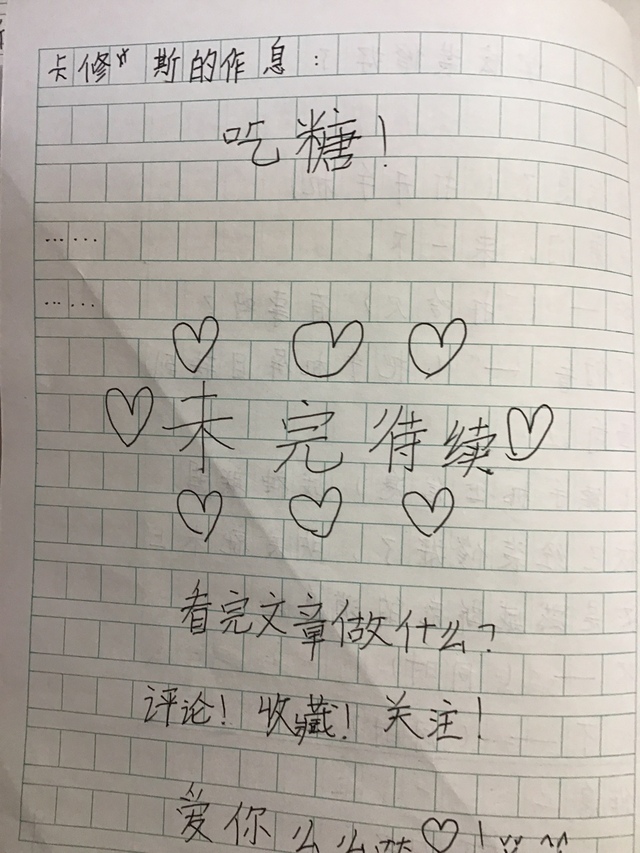 卡修斯的作息：
吃糖！
……
……
♡ ♡ ♡
♡未完待续♡
♡ ♡ ♡
看完文章做什么？
评论！收藏！关注！
爱你么么♡！